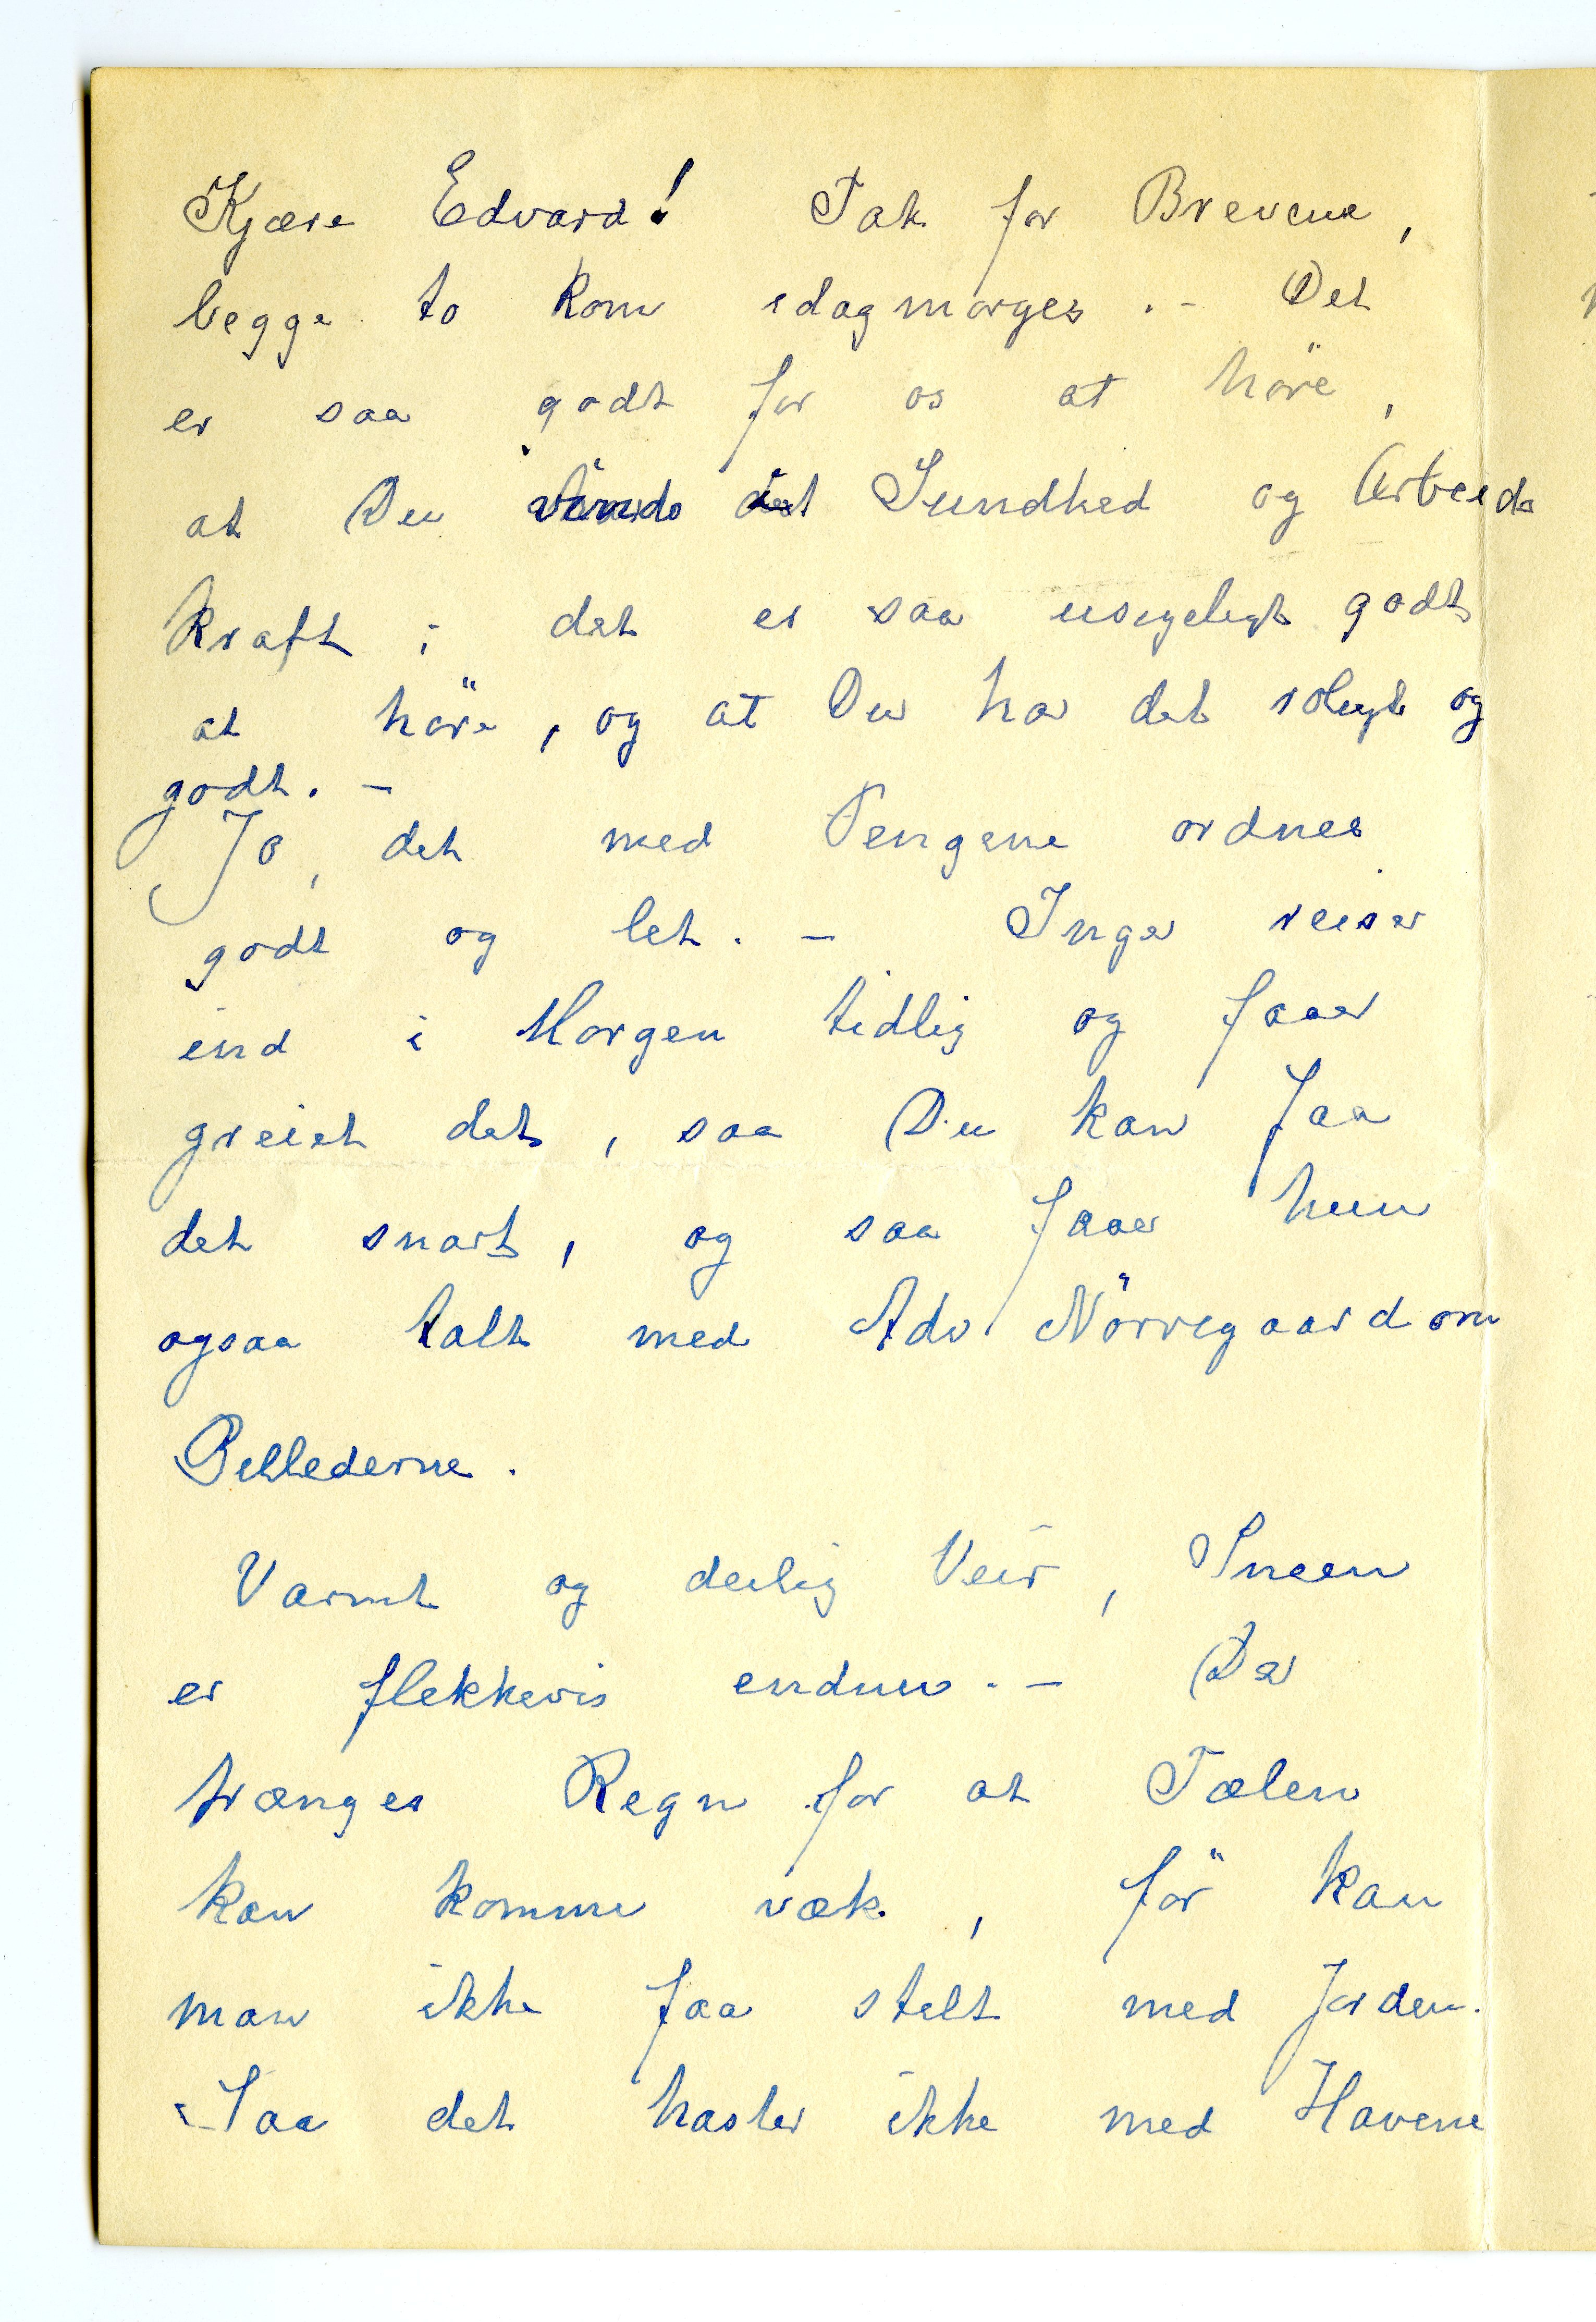 Kjære Edvard! Tak for Brevene,
begge to kom idag morges. - Det
er saa godt for os at höre,
at Du Sundhed og Arbeids
kraft; det er saa usigeligt godt
at höre, og at Du har det roligt og
godt. -
Jo, det med Pengene ordnes
godt og let. - Inger reiser
ind i Morgen tidlig og faaer
greiet det, saa Du kan faa
det snart, og saa faaer hun
ogsaa talt med Adv Nörregaard om
Billederne.
Varmt og deilig Veir, Sneen
er flekkevis endnu. - Der
trænges Regn for at Tælen
kan komme væk, för kan
man ikke faa stelt med Jorden.
Saa det haster ikke med Havene